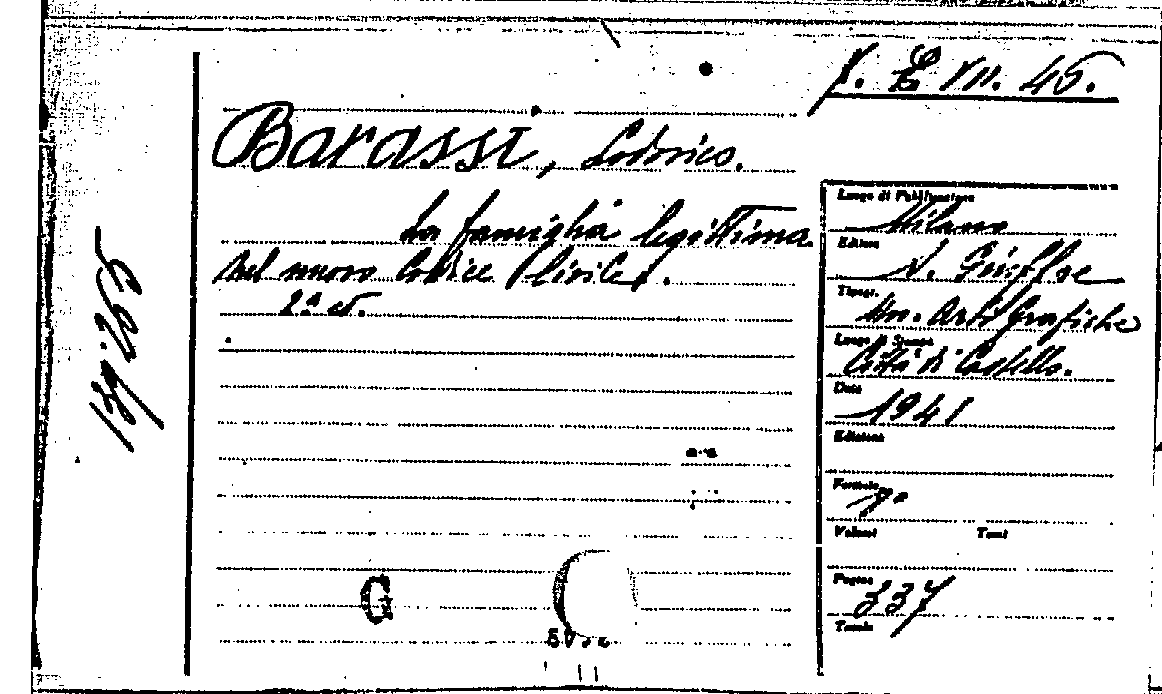 I. E. VII. 45.
Barassi, Lodovico.
La famiglia legittima
nel nuovo Codice Civile.
2ª ed.
139265
Luogo di Pubblicazione
Milano
Editore
A. Giuffrè
Tipogr.
Un. Arti Grafiche
Luogo di Stampa
Città di Castello.
Data
1941
Edizione
Formato
Volumi Tomi
Pagine
337
Tavole